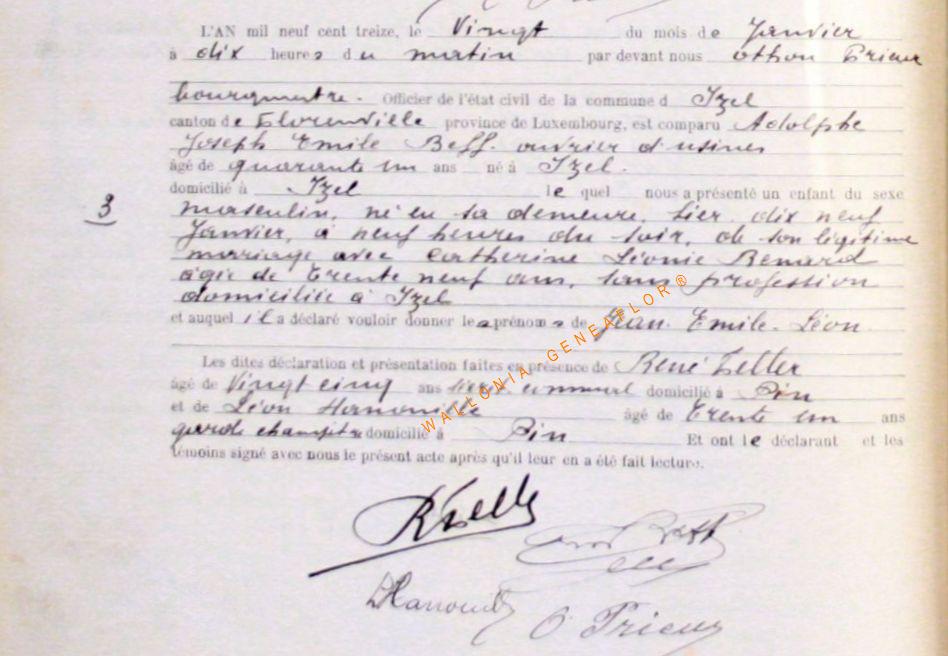 L'AN mil neuf cent treize, le Vingt du mois de Janvier
à dix heures du matin par devant nous Othon Prieur
bourgmestre. Officier de l'état civil de la commune d Izel
canton de Florenville province de Luxembourg, est comparu Adolphe
Joseph Emile Beff. ouvrier d'usines
âgé de quarante un ans né à Izel.
domicilié à Izel le quel nous a présenté un enfant du sexe
3
masculin, né en sa demeure, hier dix neuf
Janvier, à neuf heures du soir, de son légitime
mariage avec Catherine Léonie Renard
agée de trente neuf ans, sans profession
domiciliée à Izel
et auquel il a déclaré vouloir donner les prénoms de Jean Emile-Léon.
Les dites déclaration et présentation faites en présence de René
âgé de Vingt cinq ans communal domicilié à Pin
et de Léon âgé de trente un ans
garde champêtre domicilié à Pin Et ont le déclarant et les
témoins signé avec nous le présent acte après qu'il leur en a été fait lecture.
WALLONIA GENEAFLOR®
O Prieur